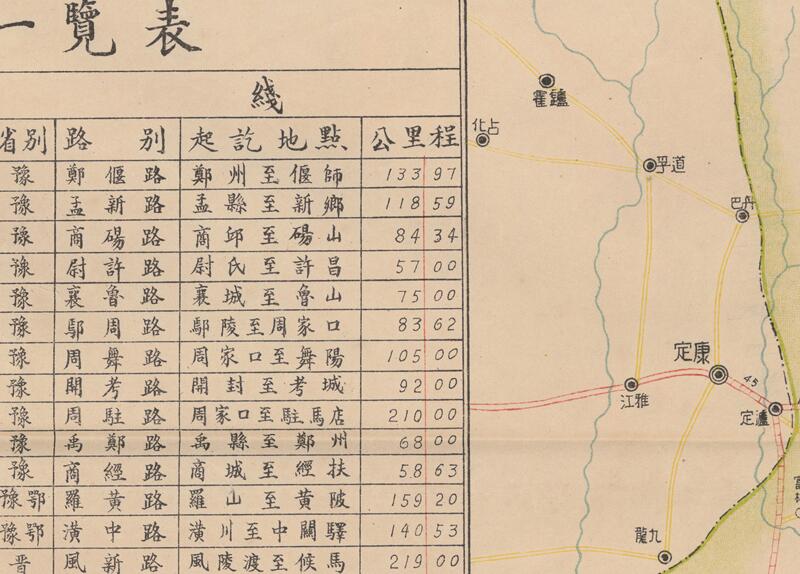 一覽表
綫
省別 路別 起訖地點 公里程
豫 鄭偃路 鄭州至偃師 133 97
豫 孟新路 孟縣至新鄉 118 59
豫 商碭路 商邱至碭山 84 34
豫 尉許路 尉氏至許昌 57 00
豫 襄魯路 襄城至魯山 75 00
豫 鄢周路 鄢陵至周家口 83 62
豫 周舞路 周家口至舞陽 105 00
豫 開考路 開封至考城 92 00
豫 周駐路 周家口至駐馬店 210 00
豫 禹鄭路 禹縣至鄭州 68 00
豫 商經路 商城至經扶 58 63
豫鄂 羅黃路 羅山至黃陂 159 20
豫鄂 潢中路 潢川至中關驛 140 53
晋 風新路 風陵渡至候馬 219 00
霍鑪
化占
孚道
巴丹
定康
江雅
45
定瀘
龍九